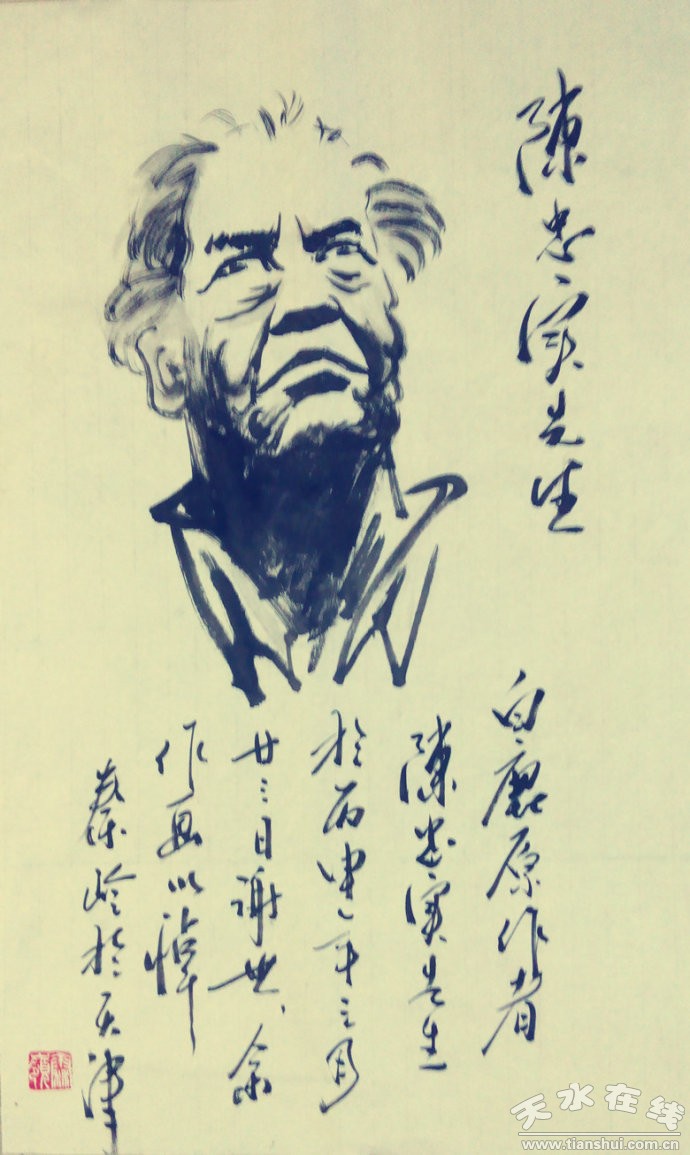 陈忠实先生
白鹿原作者
陈忠实先生
於丙申年三月
廿三日谢世、余
作画以悼
秦岭於天津
天水在线
www.tianshui.com.cn